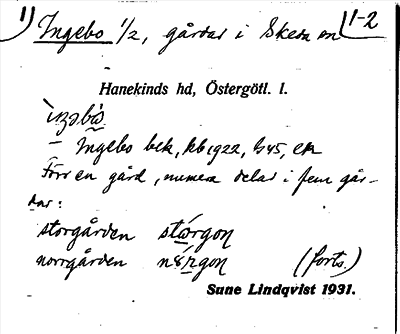 1) Ingebo 1/2, gårdar i Skeda sn 1-2
Hanekinds hd, Östergötl. l.
ìŋəbò
– Ingebo bek, kb 1922, hs 45, ek
Förr en gård, numera delad i fem går-
dar:
storgården stórgoṇ
norrgården nórgoṇ (forts.)
Sune Lindqvist 1931.